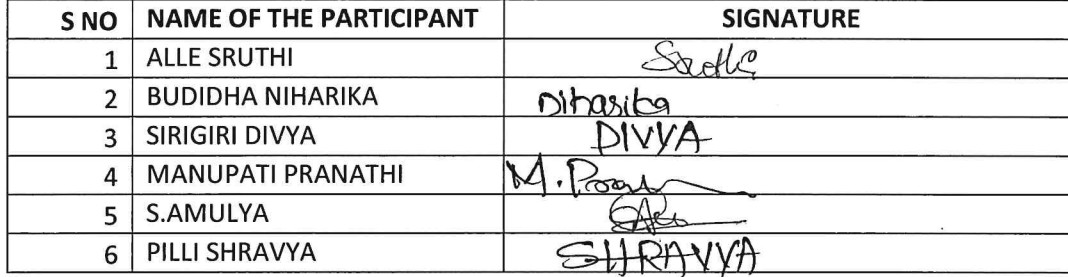 S NO NAME OF THE PARTICIPANT SIGNATURE
1 ALLE SRUTHI Sruthi
2 BUDIDHA NIHARIKA Niharika
3 SIRIGIRI DIVYA DIVYA
4 MANUPATI PRANATHI M.
5 S.AMULYA
6 PILLI SHRAVYA SHRAVYA